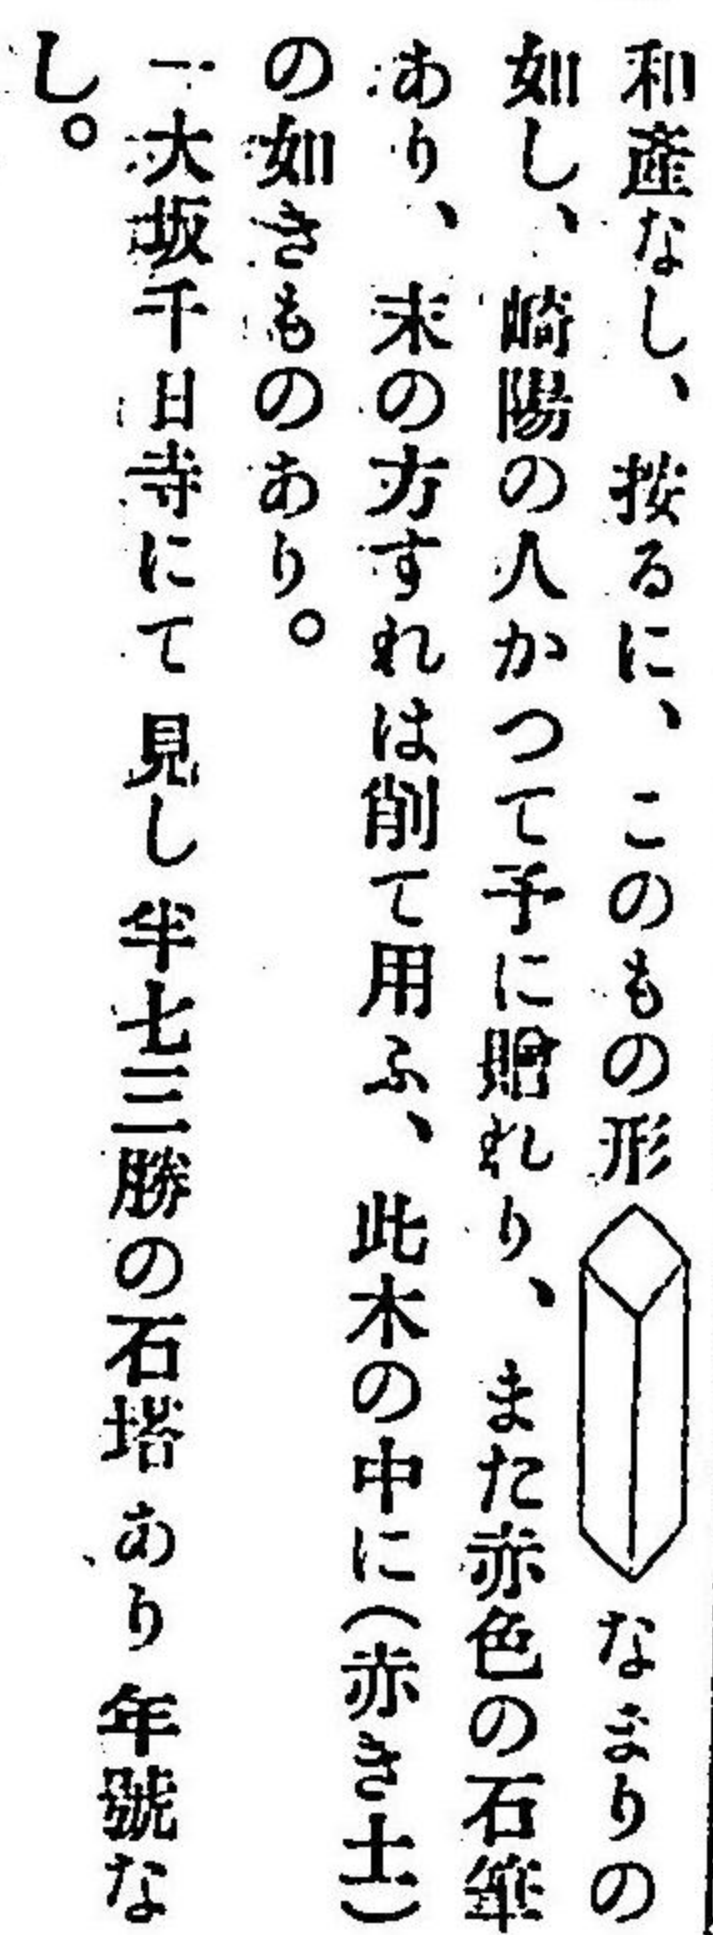 和產なし、按るに、このもの形なまりの
如し、崎陽の人かつて予に贈れり、また赤色の石筆
あり、末の方すれは削て用ふ、此木の中に(赤き土)
の如きものあり。
一大坂千日寺にて見し半七三勝の石塔あり年號な
し。